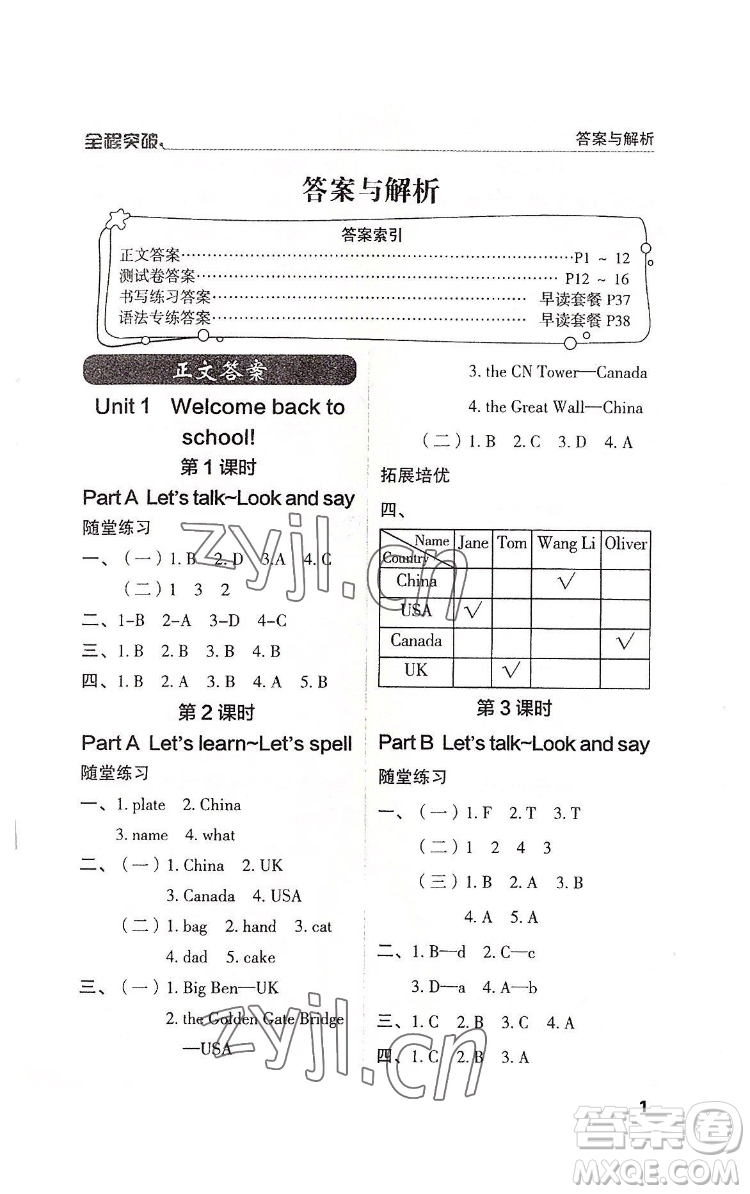 全程突破
答案与解析
答案与解析
答案索引
正文答案……P1 ~ 12
测试卷答案……P12 ~ 16
书写练习答案……早读套餐 P37
语法专练答案……早读套餐 P38
正文答案
Unit 1 Welcome back to
school!
第 1 课时
Part A Let's talk~Look and say
随堂练习
一、(一) 1. B 2. D 3. A 4. C
(二) 1 3 2
二、1-B 2-A 3-D 4-C
三、1. B 2. A 3. B 4. B
四、1. B 2. A 3. B 4. A 5. B
第 2 课时
Part A Let's learn~Let's spell
随堂练习
一、1. plate 2. China
3. name 4. what
二、(一) 1. China 2. UK
3. Canada 4. USA
(二) 1. bag 2. hand 3. cat
4. dad 5. cake
三、(一) 1. Big Ben—UK
2. the Golden Gate Bridge
—USA
3. the CN Tower—Canada
4. the Great Wall—China
(二) 1. B 2. C 3. D 4. A
拓展培优
四、
Name Jane Tom Wang Li Oliver
Country
China √
USA √
Canada √
UK √
第 3 课时
Part B Let's talk~Look and say
随堂练习
一、(一) 1. F 2. T 3. T
(二) 1 2 4 3
(三) 1. B 2. A 3. B
4. A 5. A
二、1. B—d 2. C—c
3. D—a 4. A—b
三、1. C 2. B 3. C 4. A
四、1. C 2. B 3. A
1
zyjl.cn
zyjl.cn
答案圈
MXQE.COM